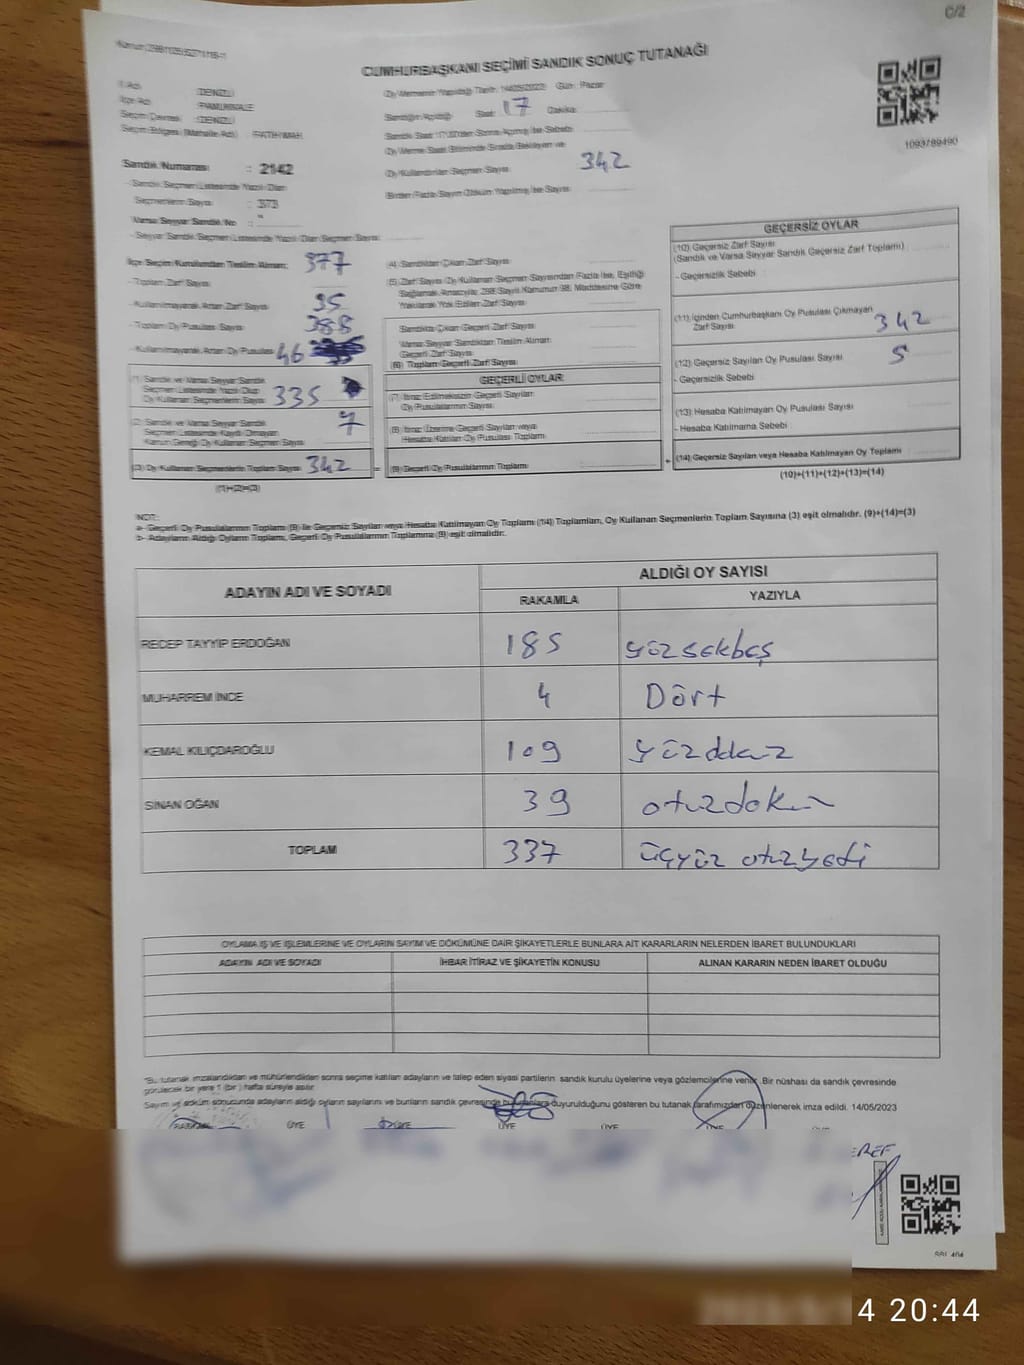 C/2
CUMHURBAŞKANI SEÇİMİ SANDIK SONUÇ TUTANAĞI
İl Adı : DENİZLİ
İlçe Adı : PAMUKKALE
Seçim Çevresi : DENİZLİ
Seçim Bölgesi (Mahalle Adı) : FATİH MAH.
Oy Vermenin Yapıldığı Tarih: 14/05/2023 Gün : Pazar
Sandığın Açıldığı Saat: 17 Dakika:
1093789490
Sandık Numarası : 2142
Sandık Seçmen Listesinde Yazılı Olan
Seçmenlerin Sayısı : 373
Varsa Seyyar Sandık No :
- Seyyar Sandık Seçmen Listesinde Yazılı Olan Seçmen Sayısı
Oy Verme Saati Bitiminde Sırada Bekleyen ve
Oy Kullandırılan Seçmen Sayısı 342
Birden Fazla Sayım Döküm Yapılmış İse Sayısı
İlçe Seçim Kurulundan Teslim Alınan; 377
- Toplam Zarf Sayısı
- Kullanılmayarak Artan Zarf Sayısı 35
- Toplam Oy Pusulası Sayısı 388
- Kullanılmayarak Artan Oy Pusulası 46
(1) Sandık ve Varsa Seyyar Sandık
Seçmen Listesinde Yazılı Olup
Oy Kullanan Seçmenlerin Sayısı 335
(2) Sandık ve Varsa Seyyar Sandık
Seçmen Listesinde Kayıtlı Olmayan
Kanun Gereği Oy Kullanan Seçmen Sayısı 7
(3) Oy Kullanan Seçmenlerin Toplam Sayısı 342
(1)+(2)=(3)
(4) Sandıktan Çıkan Zarf Sayısı
(5) Zarf Sayısı Oy Kullanan Seçmen Sayısından Fazla İse, Eşitliği
Sağlamak Amacıyla 298 Sayılı Kanunun 98. Maddesine Göre
Yakılarak Yok Edilen Zarf Sayısı
Sandıkta Çıkan Geçerli Zarf Sayısı
Varsa Seyyar Sandıktan Teslim Alınan
Geçerli Zarf Sayısı
(6) Toplam Geçerli Zarf Sayısı
GEÇERLİ OYLAR
(7) İtiraz Edilmeksizin Geçerli Sayılan
Oy Pusulalarının Sayısı
(8) İtiraz Üzerine Geçerli Sayılan veya
Hesaba Katılan Oy Pusulası Toplamı
(9) Geçerli Oy Pusulalarının Toplamı
GEÇERSİZ OYLAR
(10) Geçersiz Zarf Sayısı
(Sandık ve Varsa Seyyar Sandık Geçersiz Zarf Toplamı)
- Geçersizlik Sebebi :
(11) İçinden Cumhurbaşkanı Oy Pusulası Çıkmayan
Zarf Sayısı 342
(12) Geçersiz Sayılan Oy Pusulası Sayısı 5
- Geçersizlik Sebebi
(13) Hesaba Katılmayan Oy Pusulası Sayısı
- Hesaba Katılmama Sebebi
(14) Geçersiz Sayılan veya Hesaba Katılmayan Oy Toplamı
(10)+(11)+(12)+(13)=(14)
NOT:
a- Geçerli Oy Pusulalarının Toplamı (9) ile Geçersiz Sayılan veya Hesaba Katılmayan Oy Toplamı (14) Toplamları, Oy Kullanan Seçmenlerin Toplam Sayısına (3) eşit olmalıdır. (9)+(14)=(3)
b- Adayların Aldığı Oyların Toplamı, Geçerli Oy Pusulalarının Toplamına (9) eşit olmalıdır.
ADAYIN ADI VE SOYADI
ALDIĞI OY SAYISI
RAKAMLA YAZIYLA
RECEP TAYYİP ERDOĞAN 185 yüzsekbeş
MUHARREM İNCE 4 Dört
KEMAL KILIÇDAROĞLU 109
SİNAN OĞAN 39
TOPLAM 337 üçyüz otuzyedi
OYLAMA İŞ VE İŞLEMLERİNE VE OYLARIN SAYIM VE DÖKÜMÜNE DAİR ŞİKAYETLERLE BUNLARA AİT KARARLARIN NELERDEN İBARET BULUNDUKLARI
ADAYIN ADI VE SOYADI İHBAR İTİRAZ VE ŞİKAYETİN KONUSU ALINAN KARARIN NEDEN İBARET OLDUĞU
*Bu tutanak imzalandıktan ve mühürlendikten sonra seçime katılan adayların ve talep eden siyasi partilerin sandık kurulu üyelerine veya gözlemcilerine verilir. Bir nüshası da sandık çevresinde
görülecek bir yere 1 (bir) hafta süreyle asılır.
Sayım ve döküm sonucunda adayların aldığı oyların sayılarını ve bunların sandık çevresinde duyurulduğunu gösteren bu tutanak tarafımızdan düzenlenerek imza edildi. 14/05/2023
BAŞKAN ÜYE ÜYE ÜYE ÜYE ÜYE
4 20:44